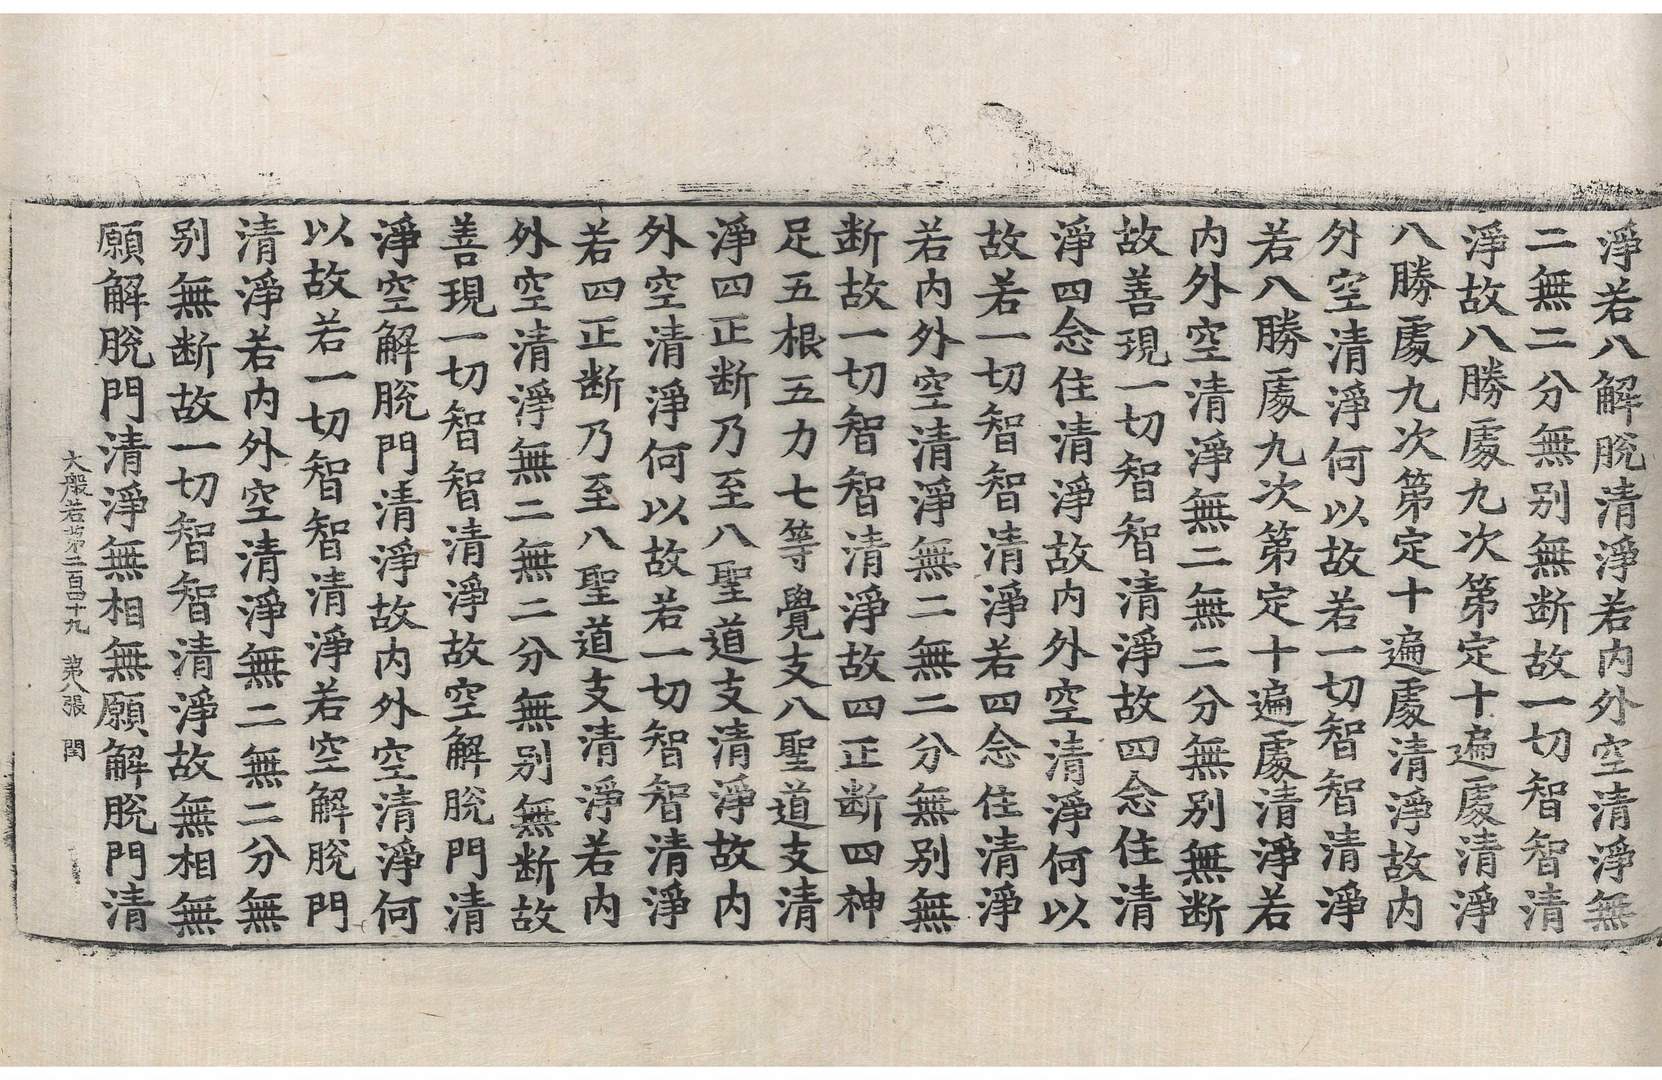 淨若八解脫清淨若内外空清淨無
二無二分無别無断故一切智智清
淨故八勝處九次第定十遍處清淨
八勝處九次第定十遍處清淨故内
外空清淨何以故若一切智智清淨
若八勝處九次第定十遍處清淨若
内外空清淨無二無二分無别無断
故善現一切智智清淨故四念住清
淨四念住清淨故内外空清淨何以
故若一切智智清淨若四念住清淨
若内外空清淨無二無二分無别無
断故一切智智清淨故四正断四神
足五根五力七等覺支八聖道支清
淨四正断乃至八聖道支清淨故内
外空清淨何以故若一切智智清淨
若四正断乃至八聖道支清淨若内
外空清淨無二無二分無别無断故
善現一切智智清淨故空解脫門清
淨空解脫門清淨故内外空清淨何
以故若一切智智清淨若空解脫門
清淨若内外空清淨無二無二分無
别無断故一切智智清淨故無相無
願解脫門清淨無相無願解脫門清
大般若第二百四十九 第八張 閏